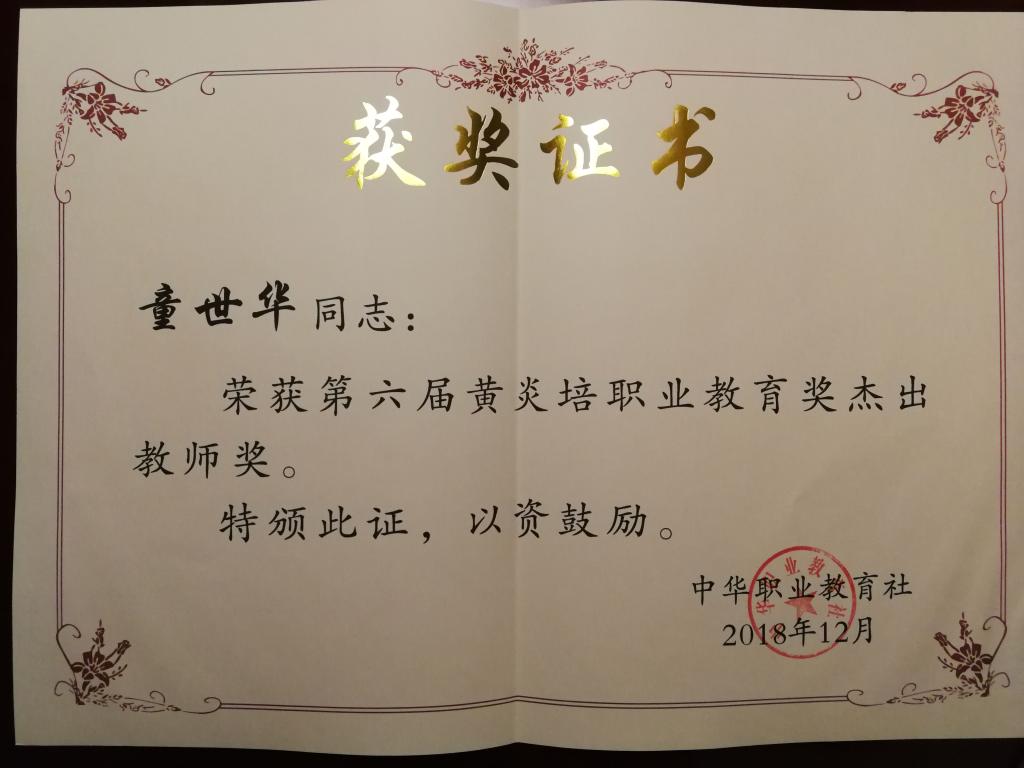 获奖证书
童世华同志：
荣获第六届黄炎培职业教育奖杰出
教师奖。
特颁此证，以资鼓励。
中华职业教育社
2018年12月
中华职业教育社